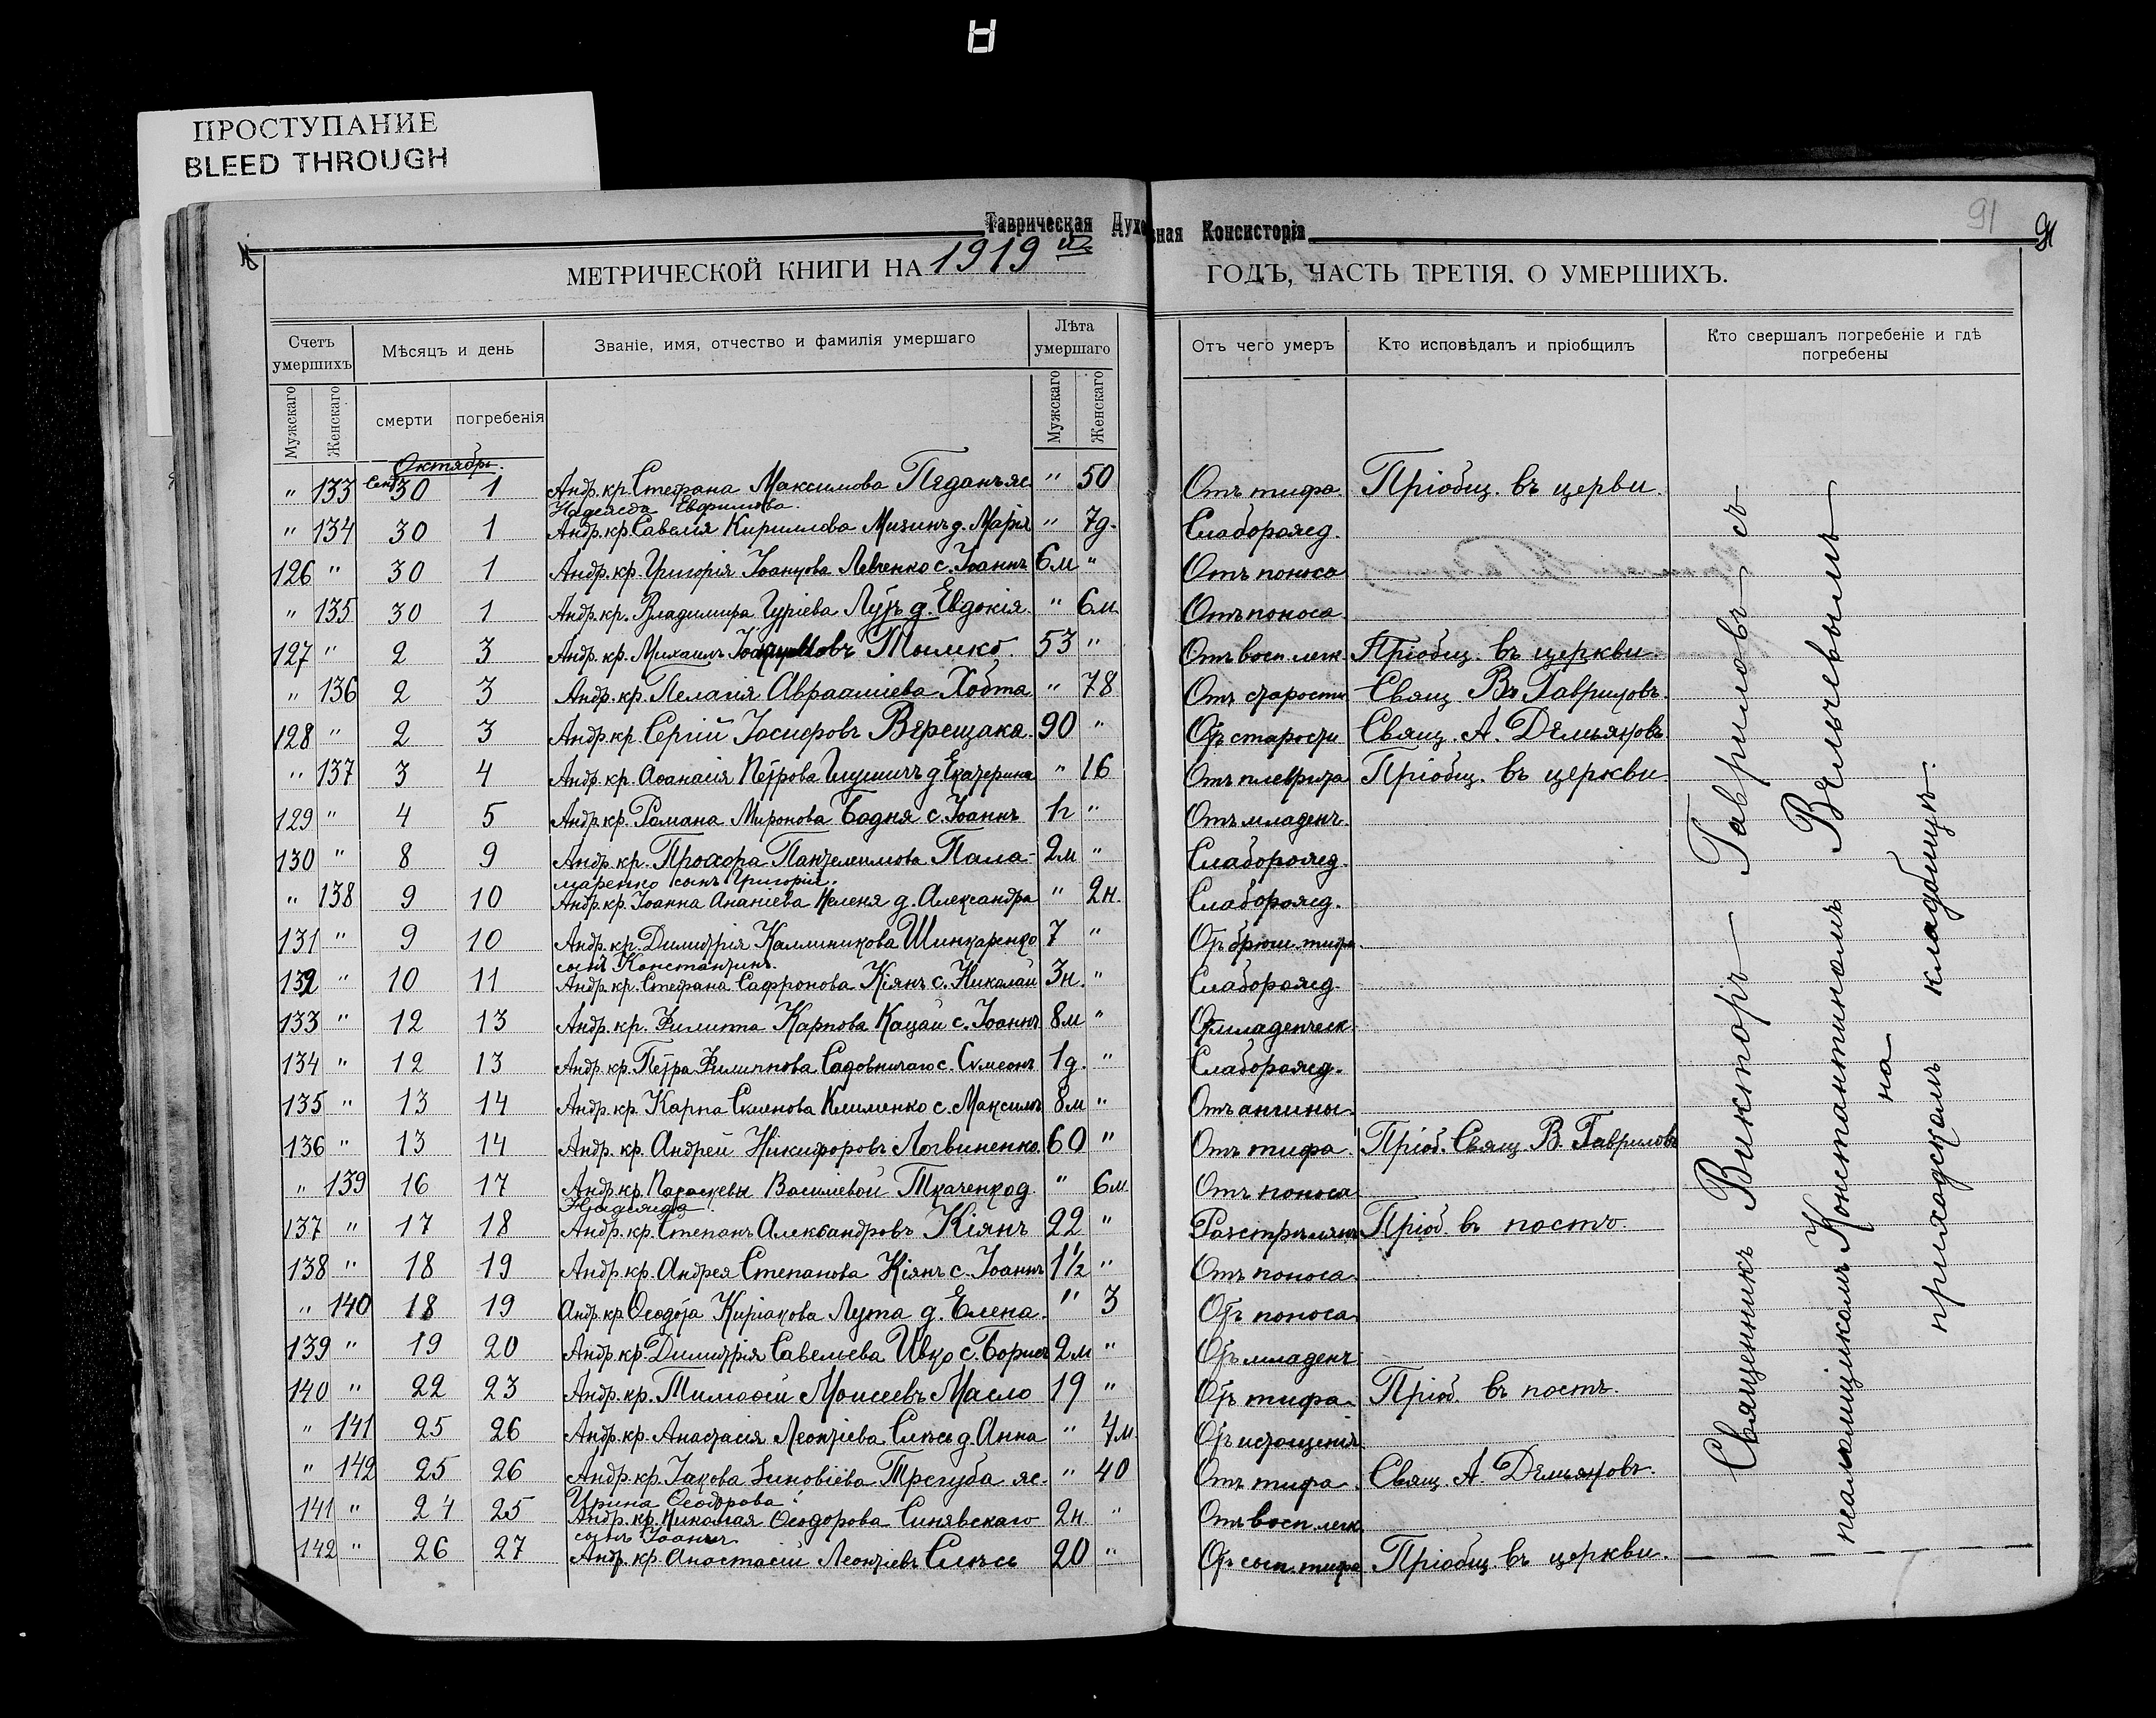 ПРОСТУПАНИЕ
BLEED THROUGH
91
91
Таврическая Духовная Консисторія
МЕТРИЧЕСКОЙ КНИГИ НА 1919 й ГОДЪ, ЧАСТЬ ТРЕТІЯ, О УМЕРШИХЪ.
Счетъ умершихъ Мѣсяцъ и день Званіе, имя, отчество и фамилія умершаго Лѣта умершаго Отъ чего умеръ Кто исповѣдалъ и пріобщилъ Кто свершалъ погребеніе и гдѣ погребены
Мужскаго Женскаго смерти погребенія Мужскаго Женскаго
Октябрь.
" 133 Сент 30 1 Андр. кр. Стефана Максимова " 50 Отъ тифа. Пріобщ. въ церви.
Надежда Евфимова.
" 134 30 1 Андр. кр. Савелія Кириллова д. Марія " 7д. Слаборожд.
126 " 30 1 Андр. кр. Григорія Іоаннова Левченко с. Іоаннъ 6м " Отъ поноса
" 135 30 1 Андр. кр. Владимира Гуріева д. Евдокія. " 6м. Отъ поноса.
127 " 2 3 Андр. кр. Михаилъ 53 " Отъ восп. легк. Пріобщ. въ церкви.
" 136 2 3 Андр. кр. Пелагія Авраамиева Хобта " 78 Отъ старости Свящ. Вл. Гавриловъ.
128 " 2 3 Андр. кр. Сергій Іосифовъ Верещака. 90 " Отъ старости Свящ. А. Демьяновъ
" 137 3 4 Андр. кр. Аѳанасія Петрова д. Екатерина " 16 Отъ плеврита Пріобщ. въ церкви
129 " 4 5 Андр. кр. Романа Миронова Бодня с. Іоаннъ 1г " Отъ младенч.
130 " 8 9 Андр. кр. Прохора Пантелеимова Пала- 2м " Слаборожд.
маренко сынъ Григорій.
" 138 9 10 Андр. кр. Іоанна Ананіева Келеня д. Александра " 2н. Слаборожд.
131 " 9 10 Андр. кр. Димитрія Каллиникова Шинкаренко 7 " Отъ брюш. тифа.
сынъ Константинъ.
132 " 10 11 Андр. кр. Стефана Сафронова Кіянъ с. Николай 3н. " Слаборожд.
133 " 12 13 Андр. кр. Филиппа Карпова Кацай с. Іоаннъ 8м " Отъ младенческ.
134 " 12 13 Андр. кр. Петра Филиппова Садовничаго с. Симеонъ 1д. " Слаборожд.
135 " 13 14 Андр. кр. Карпа Семенова Клименко с. Максимъ 8м " Отъ ангины.
136 " 13 14 Андр. кр. Андрей Никифоровъ Логвиненко. 60 " Отъ тифа. Пріоб. Свящ. В. Гавриловъ
" 139 16 17 Андр. кр. Параскевы Василіевой Ткаченко д. " 6м Отъ поноса
Надежда.
137 " 17 18 Андр. кр. Степанъ Александровъ Кіянъ 22 " Разстрѣлянъ Пріоб. въ постъ.
138 " 18 19 Андр. кр. Андрея Степанова Кіянъ с. Іоаннъ 1½ " Отъ поноса.
" 140 18 19 Андр. кр. Ѳеодота Киріакова Лута д. Елена. " 3 Отъ поноса
139 " 19 20 Андр. кр. Димитрія Савельева Ивко с. Борисъ 2м " Отъ младенч.
140 " 22 23 Андр. кр. Тимоѳей Моисеевъ Масло 19 " Отъ тифа. Пріоб. въ постъ.
" 141 25 26 Андр. кр. Анастасія Леонтіева Слюсь д. Анна " 4м. Отъ истощенія
" 142 25 26 Андр. кр. Іакова Зиновіева Трегуба же- " 40 Отъ тифа. Свящ. А. Демьяновъ.
Ирина Ѳеодорова.
141 " 24 25 Андр. кр. Николая Ѳеодорова Синявскаго 2н " Отъ восп. легк.
сынъ Іоаннъ
142 " 26 27 Андр. кр. Анастасій Леонтіевъ Слюсь 20 " Отъ сып. тифа Пріобщ. въ церкви.
Священникъ Викторъ Гавриловъ съ
псаломщикомъ Константиномъ
на
приходскомъ кладбищѣ.